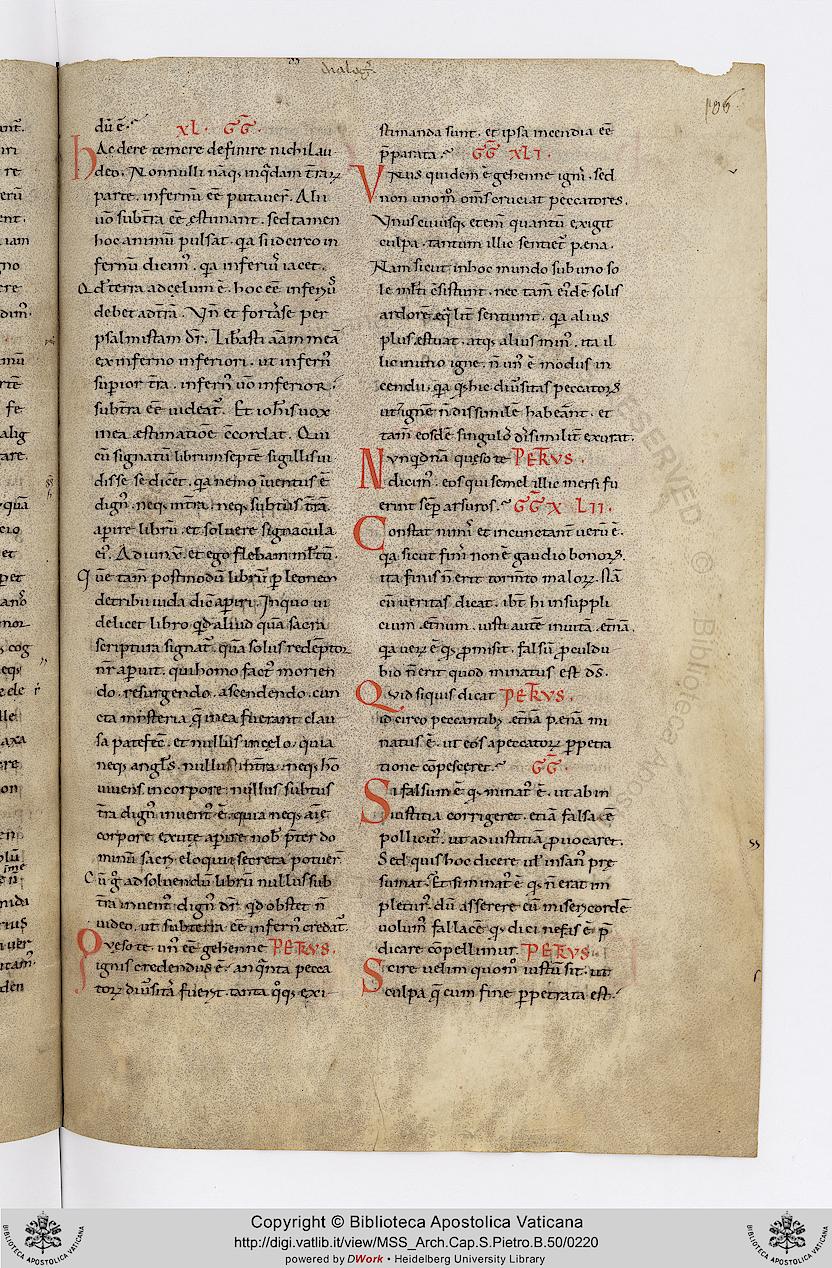 dialog
196
dū ē. XL. GG.
hAc de re temere definire nichil au
deo. Nonnulli nāq; inqdam t̄rarꝝ
parte. infernū eē putaver̄. Alii
uō subt̄ra eē ęstimant. sed tamen
hoc animū pulsat. qa si idcirco in
fernū dicim̄. qa inferi᷒ iacet.
Qd̄ terra ad cęlum ē. hoc eē infern᷒
debet ad t̄rā. Vn̄ et fortasse per
psalmistam dr̄. Liberasti aīam meā
ex inferno inferiori. ut infern᷒
supior t̄ra. infern᷒ uō inferior.
subt̄ra eē uideat᷒. Et ioh̄is uox
mea ęstimatiōe c̄cordat. Qui
cū signatū librum septē sigillis ui
disse se dicet. qa nemo īuentus ē
dign᷒. neq; int̄ra. neq; subtus t̄rā.
apire librū. et soluere signacula
ei᷒. Adiunx̄. et ego flebam mltū.
Quē tam̄ postmodū librū p leonem
de tribu iuda dic̄ apiri. In quo ui
delicet libro qd aliud quā sacra
scriptura signat᷒. quā solus redēptor
nr̄ apuit. qui homo fact᷒ morien
do. resurgendo. ascendendo. cun
cta misteria q̄ in ea fuerant clau
sa patefec̄. et nullus in cęlo. quia
neq; angl̄s. nullus int̄ra. neq; hō
uiuens in corpore. nullus subtus
t̄ra dign᷒ inuent᷒ ē. quia neq; aīe
corpore exutę apire nob̄ pter do
minū sacri eloquii secreta potuer̄.
Cū g̊ ad soluendū librū nullus sub
t̄ra inuent᷒ dign᷒ dr̄. qd obstet n̄
uideo. ut sub terra eē infern᷒ credat᷒.
Queso te. un᷒ eē gehenne PETRVS.
ignis credendus ē. an qnta pecca
torꝝ diūsitas fuerit. tanta qq; exi
stimanda sunt. et ipsa incendia eē
pparata. GG XLI.
VNus quidem ē gehenne ignis. sed
non uno m̄ om̄s cruciat peccatores.
Vnus cuiusq; etem̄ quantū exigit
culpa. tantum illic sentiet᷒ pęna.
Nam sicut in hoc mundo sub uno so
le mlti c̄sistunt. nec tam̄ ei᷒dē solis
ardorē eqlit sentiunt. qa alius
plus ęstuat. atq; alius min᷒. ita il
lic in uno igne. n̄ un᷒ ē modus in
cendii. qa qd hic diūsitas peccatorꝝ
ut ignē n̄ dissimilē habeant. et
tam̄ eosdē singulos dissimilit exurat.
Nunqdnā queso te PETRVS.
dicim᷒. eos qui semel illic mersi fu
erint semp arsuros. GG XLII.
Constat nimis et incunctant uerū ē.
qa sicut finis non ē gaudio bonorꝝ.
ita finis n̄ erit tormto malorꝝ. Nā
cū ueritas dicat. ibt hi in suppli
cium etnum. iusti autē in uitā etnā.
qa uerꝝ ē qd pmisit. falsū pculdu
bio n̄ erit quod minatus est ds̄.
Qvid siquis dicat PETRVS.
idcirco peccantibꝫ etnā pęnā mi
natus ē. ut eos a peccatorꝝ ppetra
tione cōpesceret. GG.
Si falsum ē qd minat᷒ ē. ut ab in
iustitia corrigeret. etiā falsa ē
pollicit᷒. ut ad iustitiā puocaret.
Sed quis hoc dicere ul insan᷒ prę
sumat. Et si minat᷒ ē qd n̄ erat im
pletur᷒. dū asserere eū misericordē
uolum᷒. fallacē qd dici nefas ē p̄
dicare cōpellimur. PETRVS.
Scire uelim quom̄ iustū sit. ut
culpa q̄ cum fine ppetrata est.
Copyright © Biblioteca Apostolica Vaticana
http://digi.vatlib.it/view/MSS_Arch.Cap.S.Pietro.B.50/0220
powered by DWork • Heidelberg University Library